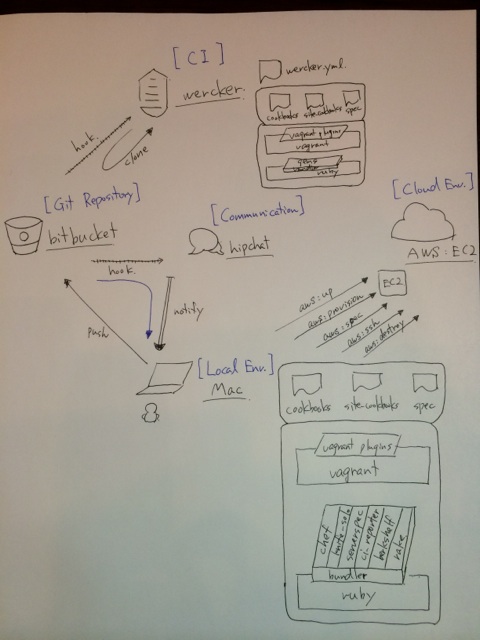 [CI]
wercker.
wercker.yml
cookbooks site-cookbooks spec
vagrant plugins
vagrant
gems
ruby
hook.
clone
[Git Repository]
bitbucket
[Communication]
hipchat
[Cloud Env.]
AWS:EC2
EC2
hook.
notify
push
aws:up
aws:provision
aws:spec
aws:ssh
aws:destroy
[Local Env.]
Mac
cookbooks site-cookbooks spec
vagrant plugins
vagrant
chef
knife-solo
serverspec
ci_reporter
berkshelf
rake
bundler
ruby